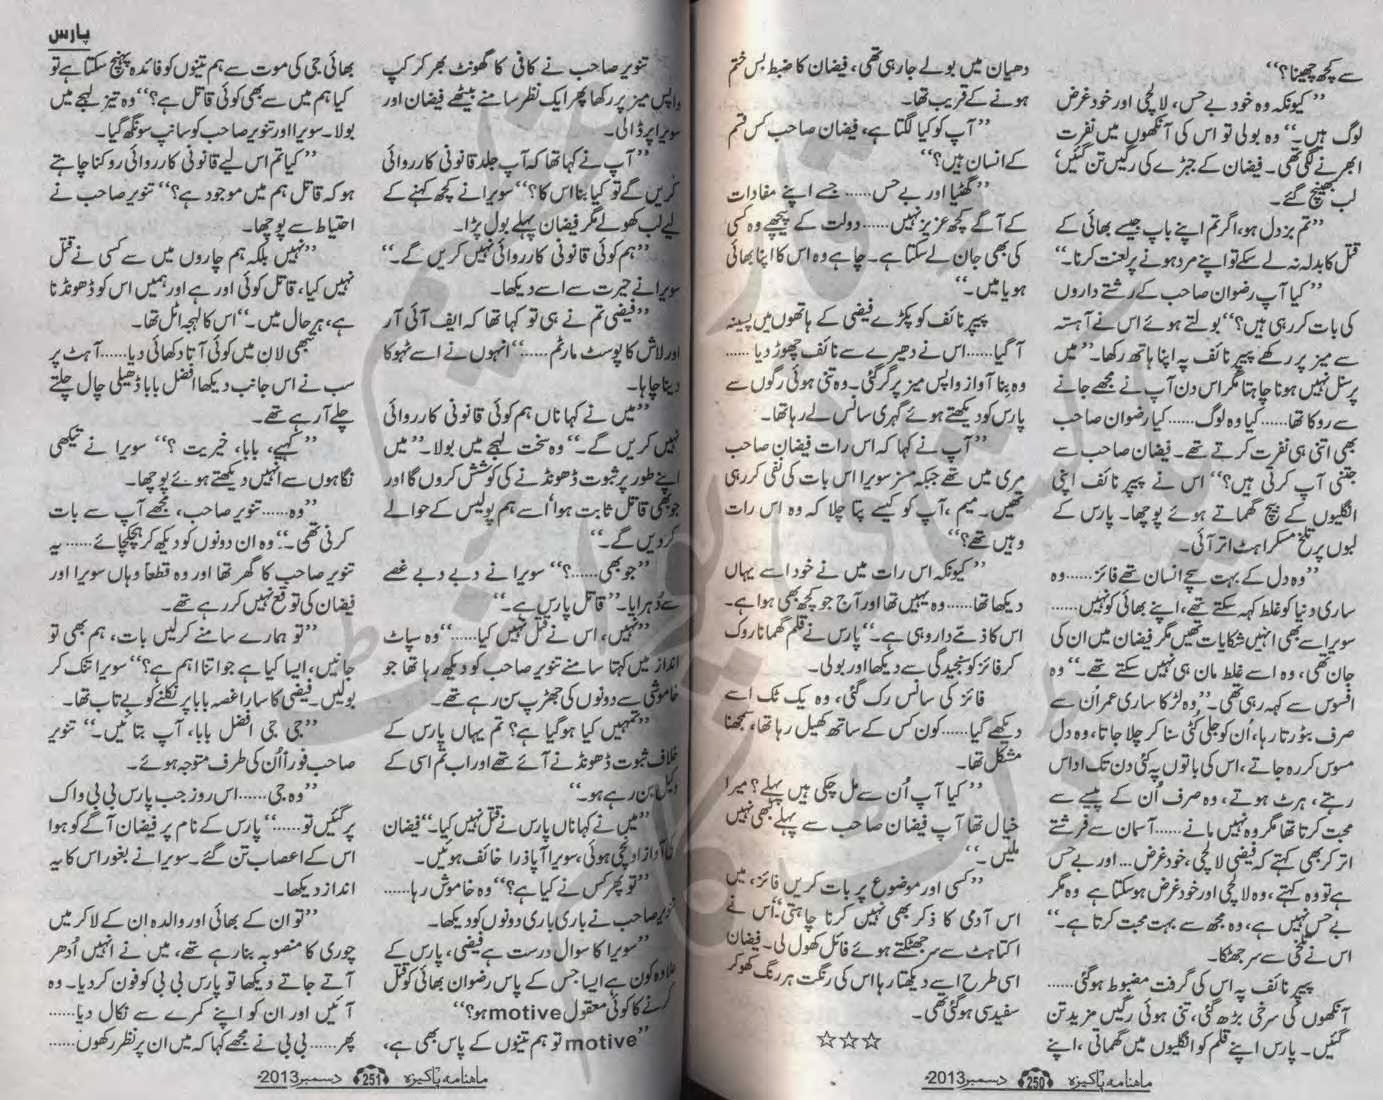 سے کچھ چھینا؟“
”کیونکہ وہ خود بے حس، لالچی اور خود غرض
لوگ ہیں۔“ وہ بولی تو اس کی آنکھوں میں نفرت
ابھرنے لگی تھی۔ فیضان کے جبڑے کی رگیں تن گئیں'
لب بھینچ گئے۔
”تم بزدل ہو، اگر تم اپنے باپ جیسے بھائی کے
قتل کا بدلہ نہ لے سکے تو اپنے مرد ہونے پر لعنت کرنا۔“
”کیا آپ رضوان صاحب کے رشتے داروں
کی بات کر رہی ہیں؟“ بولتے ہوئے اس نے آہستہ
سے میز پر رکھے پیپر نائف پہ اپنا ہاتھ رکھا۔ ”میں
پرسنل نہیں ہونا چاہتا مگر اس دن آپ نے مجھے جانے
سے روکا تھا...... کیا وہ لوگ...... کیا رضوان صاحب
بھی اتنی ہی نفرت کرتے تھے۔ فیضان صاحب سے
جتنی آپ کرتی ہیں؟“ اس نے پیپر نائف اپنی
انگلیوں کے بیچ گھماتے ہوئے پوچھا۔ پارس کے
لبوں پر تلخ مسکراہٹ اتر آئی۔
”وہ دل کے بہت سچے انسان تھے فائز...... وہ
ساری دنیا کو غلط کہہ سکتے تھے، اپنے بھائی کو نہیں......
سویرا سے بھی انہیں شکایات تھیں مگر فیضان میں ان کی
جان تھی، وہ اسے غلط مان ہی نہیں سکتے تھے۔“ وہ
افسوس سے کہہ رہی تھی۔ ”وہ لڑکا ساری عمر اُن سے
صرف بٹورتا رہا، اُن کو جلی کٹی سنا کر چلا جاتا، وہ دل
مسوس کر رہ جاتے، اس کی باتوں پہ کئی دن تک اداس
رہتے، ہرٹ ہوتے، وہ صرف اُن کے پیسے سے
محبت کرتا تھا مگر وہ نہیں مانے...... آسمان سے فرشتے
اتر کر بھی کہتے کہ فیضی لالچی، خود غرض... اور بے حس
ہے تو وہ کہتے، وہ لالچی اور خود غرض ہو سکتا ہے وہ مگر
بے حس نہیں ہے، وہ مجھ سے بہت محبت کرتا ہے۔“
اس نے تلخی سے سر جھٹکا۔
پیپر نائف پہ اس کی گرفت مضبوط ہو گئی......
آنکھوں کی سرخی بڑھ گئی، تنی ہوئی رگیں مزید تن
گئیں۔ پارس اپنے قلم کو انگلیوں میں گھماتی، اپنے
دھیان میں بولے جا رہی تھی، فیضان کا ضبط بس ختم
ہونے کے قریب تھا۔
”آپ کو کیا لگتا ہے، فیضان صاحب کس قسم
کے انسان ہیں؟“
”گھٹیا اور بے حس...... جسے اپنے مفادات
کے آگے کچھ عزیز نہیں...... دولت کے پیچھے وہ کسی
کی بھی جان لے سکتا ہے۔ چاہے وہ اس کا اپنا بھائی
ہو یا میں۔“
پیپر نائف کو پکڑے فیضی کے ہاتھوں میں پسینہ
آ گیا...... اس نے دھیرے سے نائف چھوڑ دیا......
وہ بنا آواز واپس میز پر گر گئی۔ وہ تنی ہوئی رگوں سے
پارس کو دیکھتے ہوئے گہری سانس لے رہا تھا۔
”آپ نے کہا کہ اس رات فیضان صاحب
مری میں تھے جبکہ مسز سویرا اس بات کی نفی کر رہی
تھیں۔ میم، آپ کو کیسے پتا چلا کہ وہ اس رات
وہیں تھے؟“
”کیونکہ اس رات میں نے خود اسے یہاں
دیکھا تھا...... وہ یہیں تھا اور آج جو کچھ بھی ہوا ہے۔
اس کا ذمے دار وہی ہے۔“ پارس نے قلم گھمانا روک
کر فائز کو سنجیدگی سے دیکھا اور بولی۔
فائز کی سانس رک گئی، وہ یک ٹک اسے
دیکھے گیا...... کون کس کے ساتھ کھیل رہا تھا، سمجھنا
مشکل تھا۔
”کیا آپ اُن سے مل چکی ہیں پہلے؟ میرا
خیال تھا آپ فیضان صاحب سے پہلے بھی نہیں
ملیں۔“
”کسی اور موضوع پر بات کریں فائز، میں
اس آدمی کا ذکر بھی نہیں کرنا چاہتی“ اُس نے
اکتاہٹ سے سر جھٹکتے ہوئے فائل کھول لی۔ فیضان
اسی طرح اسے دیکھتا رہا اس کی رنگت ہر رنگ کھو کر
سفید سی ہو گئی تھی۔
☆☆☆
ماہنامہ پاکیزہ 250 دسمبر 2013ء
پارس
تنویر صاحب نے کافی کا گھونٹ بھر کر کپ
واپس میز پر رکھا پھر ایک نظر سامنے بیٹھے فیضان اور
سویرا پر ڈالی۔
”آپ نے کہا تھا کہ آپ جلد قانونی کارروائی
کریں گے تو کیا بنا اس کا؟“ سویرا نے کچھ کہنے کے
لیے لب کھولے مگر فیضان پہلے بول پڑا۔
”ہم کوئی قانونی کارروائی نہیں کریں گے۔“
سویرا نے حیرت سے اسے دیکھا۔
”فیضی تم نے ہی تو کہا تھا کہ ایف آئی آر
اور لاش کا پوسٹ مارٹم......“ انہوں نے اسے ٹہوکا
دینا چاہا۔
”میں نے کہا ناں ہم کوئی قانونی کارروائی
نہیں کریں گے۔“ وہ سخت لہجے میں بولا۔ ”میں
اپنے طور پر ثبوت ڈھونڈنے کی کوشش کروں گا اور
جو بھی قاتل ثابت ہوا' اُسے ہم پولیس کے حوالے
کر دیں گے۔“
”جو بھی......؟“ سویرا نے دبے دبے غصے
سے دُہرایا۔ ”قاتل پارس ہے۔“
”نہیں، اس نے قتل نہیں کیا......“ وہ سپاٹ
انداز میں کہتا سامنے تنویر صاحب کو دیکھ رہا تھا جو
خاموشی سے دونوں کی جھڑپ سن رہے تھے۔
”تمہیں کیا ہو گیا ہے؟ تم یہاں پارس کے
خلاف ثبوت ڈھونڈنے آئے تھے اور اب تم اسی کے
وکیل بن رہے ہو۔“
”میں نے کہا ناں پارس نے قتل نہیں کیا۔“ فیضان
کی آواز اونچی ہوئی، سویرا آپا ذرا خائف ہوئیں۔
”تو پھر کس نے کیا ہے؟“ وہ خاموش رہا......
تنویر صاحب نے باری باری دونوں کو دیکھا۔
”سویرا کا سوال درست ہے فیضی، پارس کے
علاوہ کون ہے ایسا جس کے پاس رضوان بھائی کو قتل
کرنے کا کوئی معقول motive ہو؟“
”motive تو ہم تینوں کے پاس بھی ہے،
بھائی جی کی موت سے ہم تینوں کو فائدہ پہنچ سکتا ہے تو
کیا ہم میں سے بھی کوئی قاتل ہے؟“ وہ تیز لہجے میں
بولا۔ سویرا اور تنویر صاحب کو سانپ سونگھ گیا۔
”کیا تم اس لیے قانونی کارروائی روکنا چاہتے
ہو کہ قاتل ہم میں موجود ہے؟“ تنویر صاحب نے
احتیاط سے پوچھا۔
”نہیں بلکہ ہم چاروں میں سے کسی نے قتل
نہیں کیا، قاتل کوئی اور ہے اور ہمیں اس کو ڈھونڈنا
ہے، ہر حال میں۔“ اس کا لہجہ اٹل تھا۔
تبھی لان میں کوئی آتا دکھائی دیا...... آہٹ پر
سب نے اس جانب دیکھا افضل بابا ڈھیلی چال چلتے
چلے آ رہے تھے۔
”کہیے، بابا، خیریت؟“ سویرا نے تیکھی
نگاہوں سے انہیں دیکھتے ہوئے پوچھا۔
”وہ...... تنویر صاحب، مجھے آپ سے بات
کرنی تھی۔“ وہ ان دونوں کو دیکھ کر ہچکچائے...... یہ
تنویر صاحب کا گھر تھا اور وہ قطعاً وہاں سویرا اور
فیضان کی توقع نہیں کر رہے تھے۔
”تو ہمارے سامنے کر لیں بات، ہم بھی تو
جانیں، ایسا کیا ہے جو اتنا اہم ہے؟“ سویرا تنک کر
بولیں۔ فیضی کا سارا غصہ بابا پر نکلنے کو بے تاب تھا۔
”جی جی افضل بابا، آپ بتائیں۔“ تنویر
صاحب فوراً اُن کی طرف متوجہ ہوئے۔
”وہ جی...... اس روز جب پارس بی بی واک
پر گئیں تو......“ پارس کے نام پر فیضان آگے کو ہوا
اس کے اعصاب تن گئے۔ سویرا نے بغور اس کا یہ
انداز دیکھا۔
”تو ان کے بھائی اور والدہ ان کے لاکر میں
چوری کا منصوبہ بنا رہے تھے، میں نے انہیں اُدھر
آتے جاتے دیکھا تو پارس بی بی کو فون کر دیا۔ وہ
آئیں اور ان کو اپنے کمرے سے نکال دیا......
پھر...... بی بی نے مجھے کہا کہ میں ان پر نظر رکھوں......
ماہنامہ پاکیزہ 251 دسمبر 2013ء